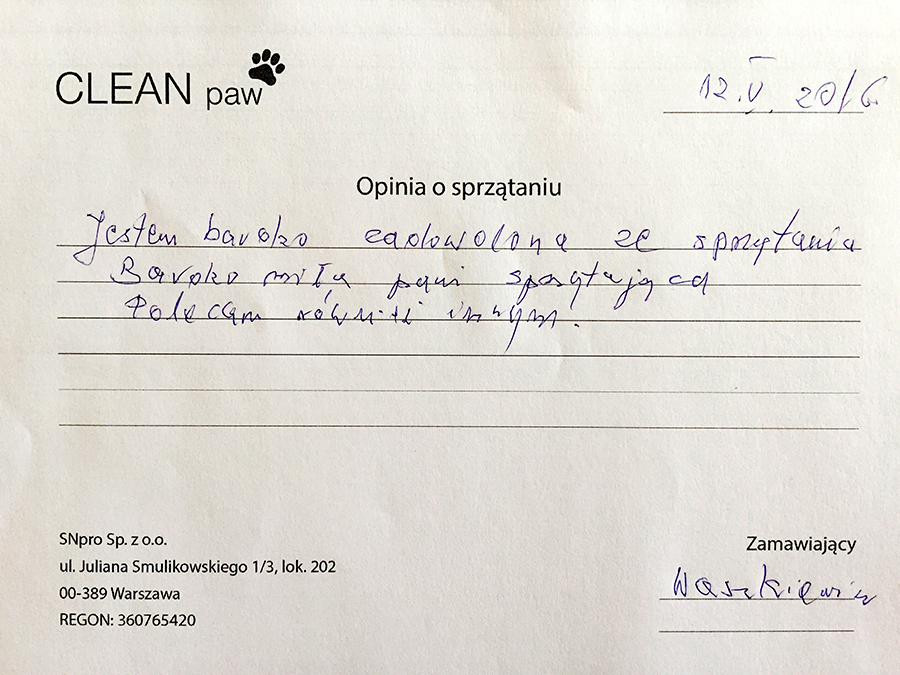 CLEAN paw
12.V.2016
Opinia o sprzątaniu
Jestem bardzo zadowolona ze sprzątania
Bardzo miła pani sprzątająca
Polecam również innym.
SNpro Sp. z o.o.
ul. Juliana Smulikowskiego 1/3, lok. 202
00-389 Warszawa
REGON: 360765420
Zamawiający
Waszkiewicz